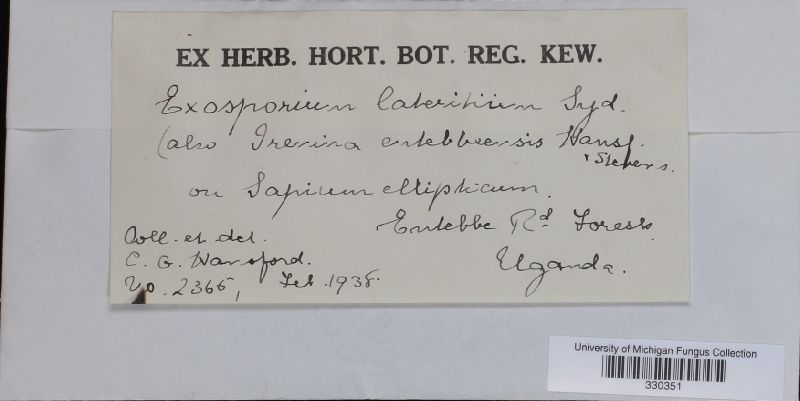 EX HERB. HORT. BOT. REG. KEW.
Exosporium lateritium Syd.
(also Irenina entebbeensis Hansf.
& Stevens.
on Sapium ellipticum.
Entebbe Rd. Forest.
Uganda.
Coll. et det.
C. G. Hansford.
No. 2365, Feb. 1938.
University of Michigan Fungus Collection
330351